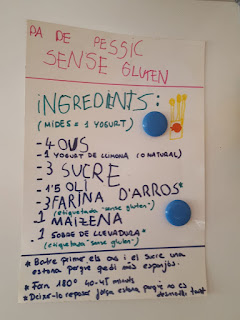 PA DE PESSIC
SENSE GLUTEN
INGREDIENTS:
(MIDES = 1 YOGURT)
- 4 OUS
- 1 YOGURT DE LLIMONA (O NATURAL)
- 3 SUCRE
- 1'5 OLI
- 3 FARINA D'ARROS*
(etiquetada "sense gluten")
- 1 MAIZENA
- 1 SOBRE DE LLEVADURA*
(etiquetada "sense gluten")
* Batre primer els ous i el sucre una
estona perque quedi més esponjós.
* Forn 180º 40-45 minuts
* Deixar-lo reposar força estona perquè no es
desmunti tant